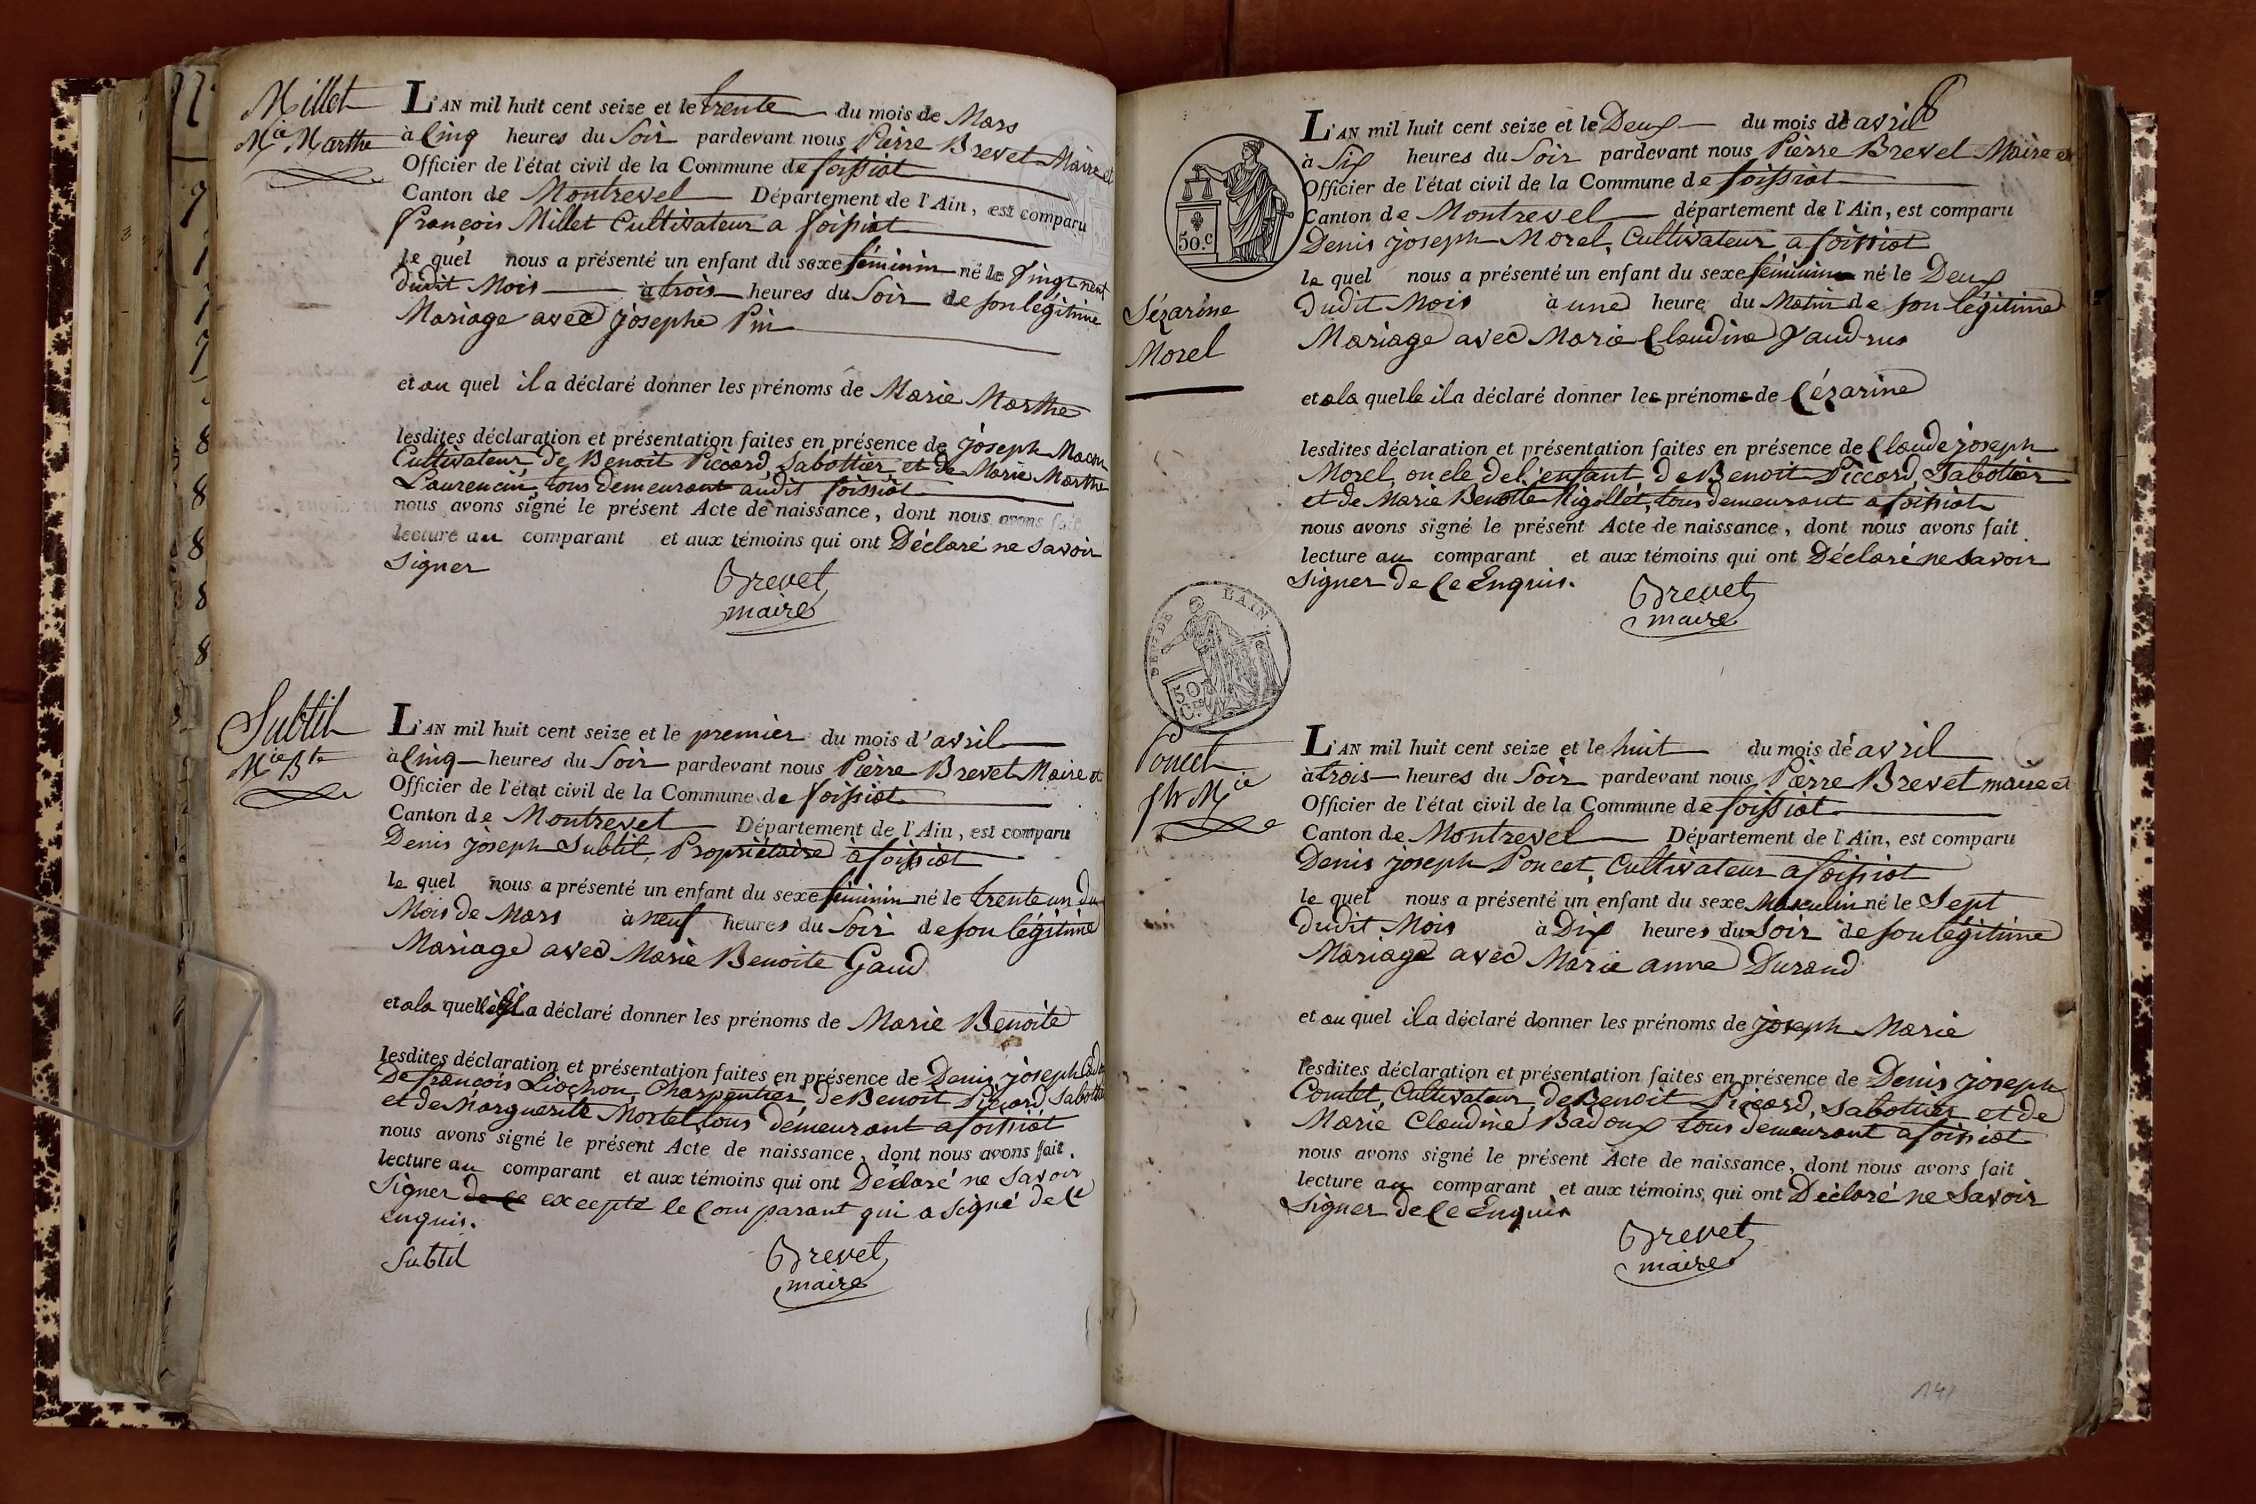 Millet
Mie Marthe
L'AN mil huit cent seize et le trente du mois de Mars
à Cinq heures du Soir pardevant nous Pierre Brevet Maire et
Officier de l'état civil de la Commune de foissiat
Canton de Montrevel Département de l'Ain, est comparu
françois Millet Cultivateur a foissiat
le quel nous a présenté un enfant du sexe féminin né le Vingt neuf
dudit Mois à trois heures du Soir de son légitime
Mariage avec josephe Pin
et au quel il a déclaré donner les prénoms de Marie Marthe
lesdites déclaration et présentation faites en présence de joseph
Cultivateur, de Benoit Piccard, Sabottier et de Marie Marthe
Laurencin, tous demeurant audit foissiat
nous avons signé le présent Acte de naissance, dont nous avons fait
lecture au comparant et aux témoins qui ont Déclaré ne Savoir
Signer
Brevet
maire
Subtil
Mie Bte
L'AN mil huit cent seize et le premier du mois d'avril
à Cinq heures du Soir pardevant nous Pierre Brevet Maire et
Officier de l'état civil de la Commune de foissiat
Canton de Montrevel Département de l'Ain, est comparu
Denis joseph Subtil, Propriétaire à foissiat
le quel nous a présenté un enfant du sexe féminin né le trente un du
Mois de Mars à neuf heures du Soir de son légitime
Mariage avec Marie Benoite Gaud
et a la quelle il a déclaré donner les prénoms de Marie Benoite
lesdites déclaration et présentation faites en présence de Denis joseph
De françois Liochon, Charpentier, de Benoit Piccard Sabottier
et de Marguerite Mortel, tous demeurant a foissiat
nous avons signé le présent Acte de naissance, dont nous avons fait
lecture au comparant et aux témoins qui ont Déclaré ne Savoir
Signer de Ce excepté le Comparant qui a signé de Ce
enquis.
Subtil
Brevet
maire
50.c
Sézarine
Morel
L'AN mil huit cent seize et le Deux du mois de avril
à Six heures du Soir pardevant nous Pierre Brevet Maire et
Officier de l'état civil de la Commune de foissiat
Canton de Montrevel département de l'Ain, est comparu
Denis joseph Morel, Cultivateur a foissiat
le quel nous a présenté un enfant du sexe féminin né le Deux
dudit Mois à une heure du Matin de son légitime
Mariage avec Marie Claudine Vaudrus
et a la quelle il a déclaré donner les prénoms de Cézarine
lesdites déclaration et présentation faites en présence de Claude joseph
Morel, oncle de l'enfant, de Benoit Piccard, Sabottier
et de Marie Benoite Rigollet, tous demeurant a foissiat
nous avons signé le présent Acte de naissance, dont nous avons fait
lecture au comparant et aux témoins qui ont Déclaré ne Savoir
Signer de Ce Enquis.
Brevet
maire
DE L'AIN
50
Poucet
jh Mie
L'AN mil huit cent seize et le huit du mois de avril
à trois heures du Soir pardevant nous Pierre Brevet maire et
Officier de l'état civil de la Commune de foissiat
Canton de Montrevel Département de l'Ain, est comparu
Denis joseph Poucet, Cultivateur a foissiat
le quel nous a présenté un enfant du sexe Masculin né le Sept
dudit Mois à Dix heures du Soir de son légitime
Mariage avec Marie anne Durand
et au quel il a déclaré donner les prénoms de joseph Marie
lesdites déclaration et présentation faites en présence de Denis joseph
Comtet, Cultivateur, de Benoit Piccard, Sabottier et de
Marie Claudine Badoux tous demeurant a foissiat
nous avons signé le présent Acte de naissance, dont nous avons fait
lecture au comparant et aux témoins qui ont Déclaré ne Savoir
Signer de Ce Enquis
Brevet
maire